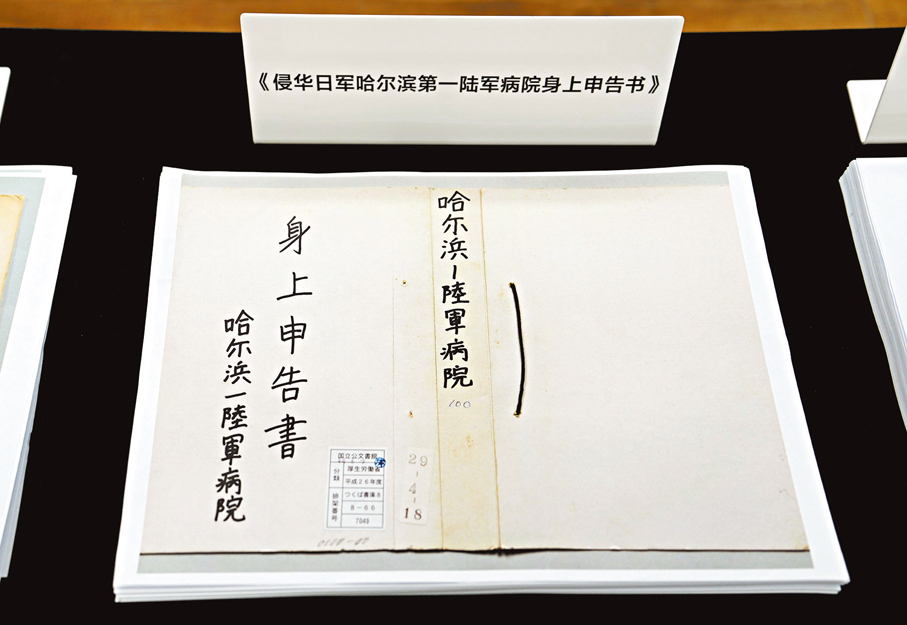 《侵华日军哈尔滨第一陆军病院身上申告书》
哈尔浜一陸軍病院
100
身上申告書
哈尔浜一陸軍病院
国立公文書館
分類
厚生労働省
平成26年度
つくば書庫8
排架番号
8-66
7049
29
-
4
-
18